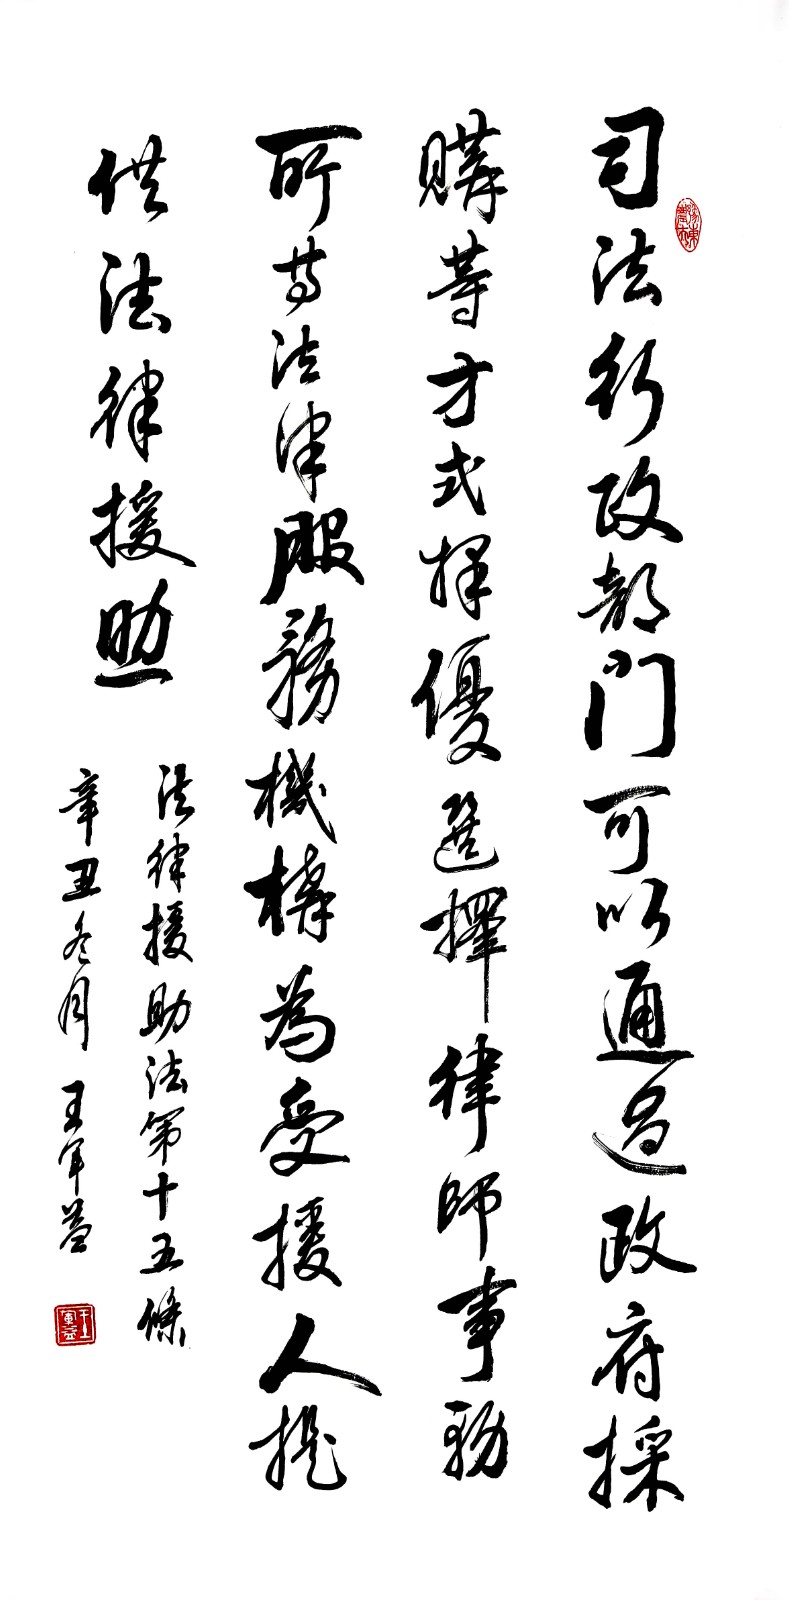 司法行政部門可以通過政府採
購等方式择優選擇律師事務
所等法律服務機構為受援人提
供法律援助
法律援助法第十五條
辛丑冬月 王军益
王軍益